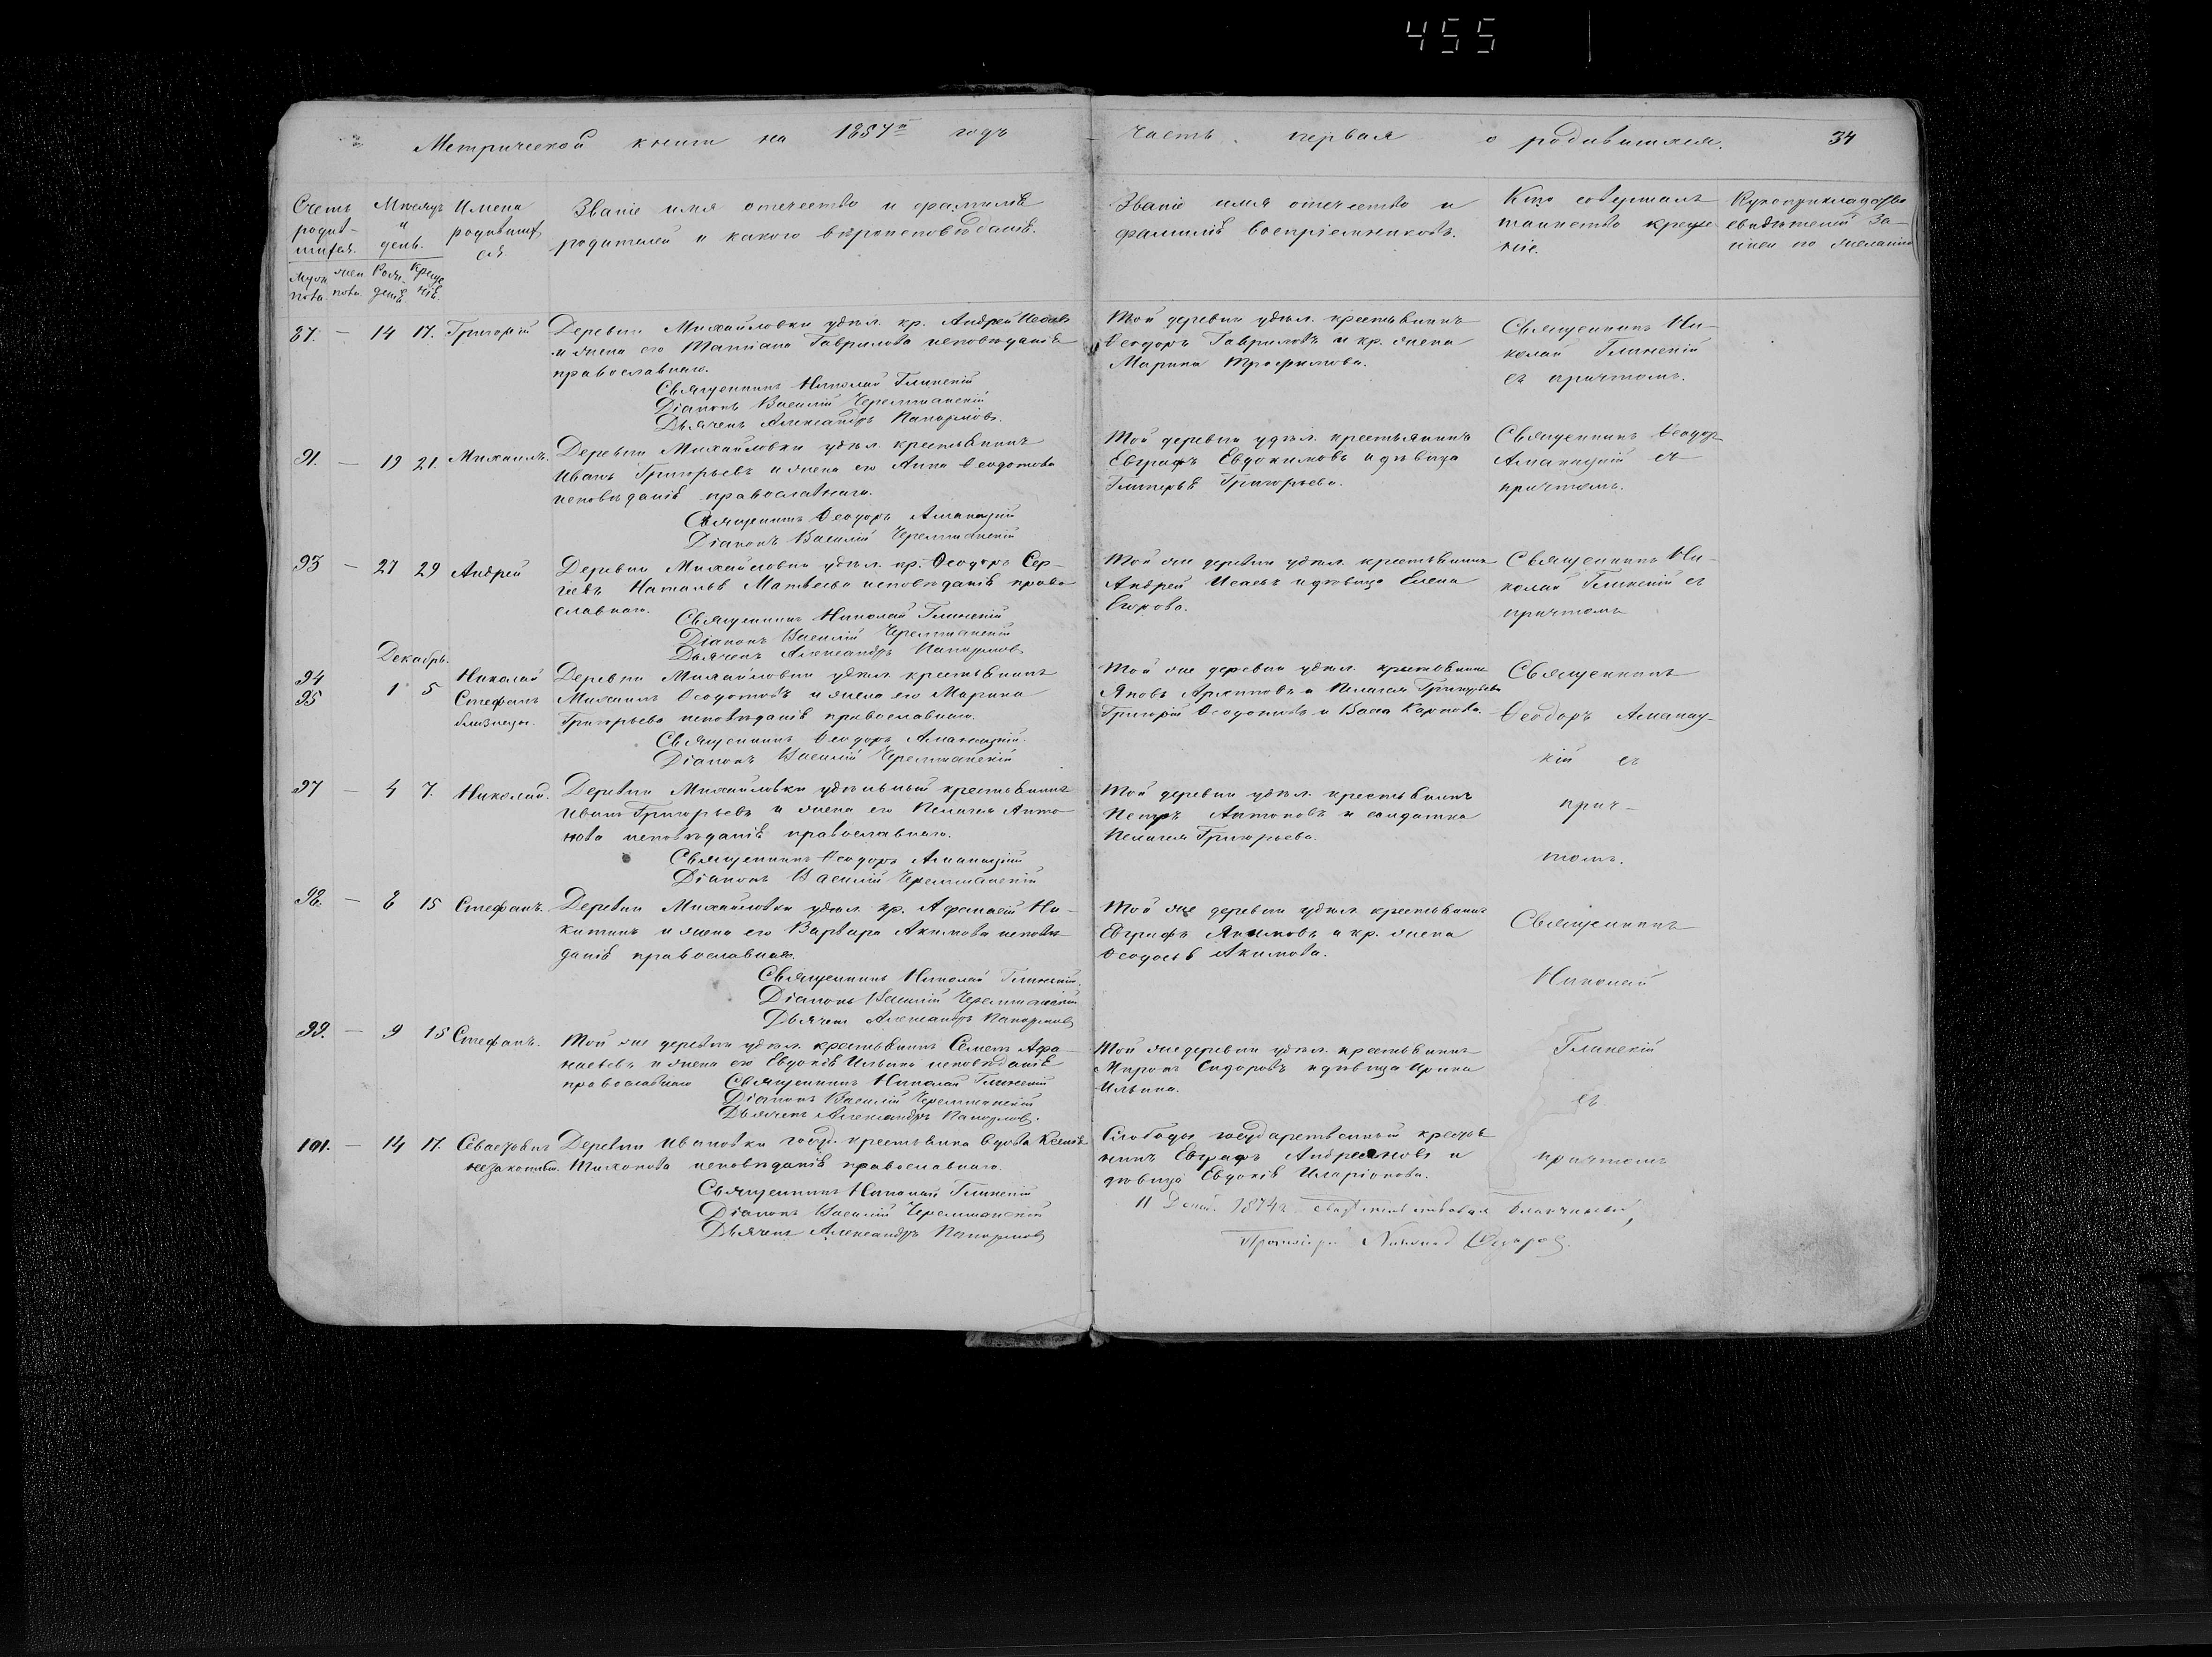 455
Метрической книги на 1857й годъ
часть первая о родившихся. 34
Счетъ родив-шихся.
Муж пола. жен пола.
Мѣсяцъ и день.
Рожденія. Крещенія.
Имена родившихся.
Званіе имя отечество и фамилія
родителей и какого вѣроисповѣданія.
Званіе имя отечество и
фамилія воспріемниковъ.
Кто совершалъ
таинство креще-
нія.
Рукоприкладство
свидѣтелей за-
писи по желанію
87. — 14 17. Григорій
Деревни Михайловки удѣл. кр. Андрей Исаевъ
и жена его Татіана Гаврилова исповѣданія
православнаго.
Священникъ Николай Глинскій
Діаконъ Василій Черемшанскій
Дьячекъ Александръ
Той деревни удѣл. крестьянинъ
Ѳеодоръ Гавриловъ и кр. жена
Марина Трофимова.
Священникъ Ни-
колай Глинскій
съ причтомъ.
91. — 19 21. Михаилъ.
Деревни Михайловки удѣл. крестьянинъ
Иванъ Григорьевъ и жена его Анна Ѳеодотова
исповѣданія православнаго.
Священникъ Ѳеодоръ Аманацкій
Діаконъ Василій Черемшанскій
Той деревни удѣл. крестьянинъ
Евграфъ Евдокимовъ и дѣвица
Гликерья Григорьева.
Священникъ Ѳеодоръ
Аманацкій съ
причтомъ.
93 — 27 29 Андрей
Деревни Михайловки удѣл. кр. Ѳеодоръ Сер-
гѣевъ Наталья Матвѣева исповѣданія право
славнаго.
Священникъ Николай Глинскій
Діаконъ Василій Черемшанскій
Дьячекъ Александръ
Той же деревни удѣл. крестьянинъ
Андрей Исаевъ и дѣвица Елена
Егорова.
Священникъ Ни-
колай Глинскій съ
причтомъ
Декабрь.
94
95
1 5
Николай
Стефанъ
близнецы.
Деревни Михайловки удѣл. крестьянинъ
Михаилъ Ѳеодотовъ и жена его Марина
Григорьева исповѣданія православнаго.
Священникъ Ѳеодоръ Аманацкій.
Діаконъ Василій Черемшанскій
Той же деревни удѣл. крестьянинъ
Яковъ Архиповъ и Пелагея Григорьева
Григорій Ѳеодотовъ и Васса Карпова.
Священникъ
Ѳеодоръ Аманац-
кій съ
прич-
томъ.
97 — 4 7. Николай.
Деревни Михайловки удѣльный крестьянинъ
Иванъ Григорьевъ и жена его Пелагея Анто
нова исповѣданія православнаго.
Священникъ Ѳеодоръ Аманацкій
Діаконъ Василій Черемшанскій
Той деревни удѣл. крестьянинъ
Петръ Антоновъ и солдатка
Пелагея Григорьева.
98. — 8 15 Стефанъ.
Деревни Михайловки удѣл. кр. Афанасій Ни-
китинъ и жена его Варвара Акимова исповѣ
данія православнаго.
Священникъ Николай Глинскій.
Діаконъ Василій Черемшанскій
Дьячекъ Александръ
Той же деревни удѣл. крестьянинъ
Евграфъ Якимовъ и кр. жена
Ѳеодосья Акимова.
Священникъ
Николай
Глинскій
съ
причтомъ
99. — 9 15 Стефанъ.
Той же деревни удѣл. крестьянинъ Семенъ Афа-
насьевъ и жена его Евдокія Ильина исповѣданія
православнаго Священникъ Николай Глинскій
Діаконъ Василій Черемшанскій
Дьячекъ Александръ
Той же деревни удѣл. крестьянинъ
Миронъ Сидоровъ и дѣвица Ирина
Ильина.
101. — 14 17. Севастьянъ незаконный.
Деревни Ивановки госуд. крестьянка вдова Ксенія
Тихонова исповѣданія православнаго.
Священникъ Николай Глинскій
Діаконъ Василій Черемшанскій
Дьячекъ Александръ
Слободы государственный кресть
нинъ Евграфъ Андреяновъ и
дѣвица Евдокія Иларіонова.
11 Декаб. 1874 г. свидѣтельствовалъ благочинный,
Протоіерей